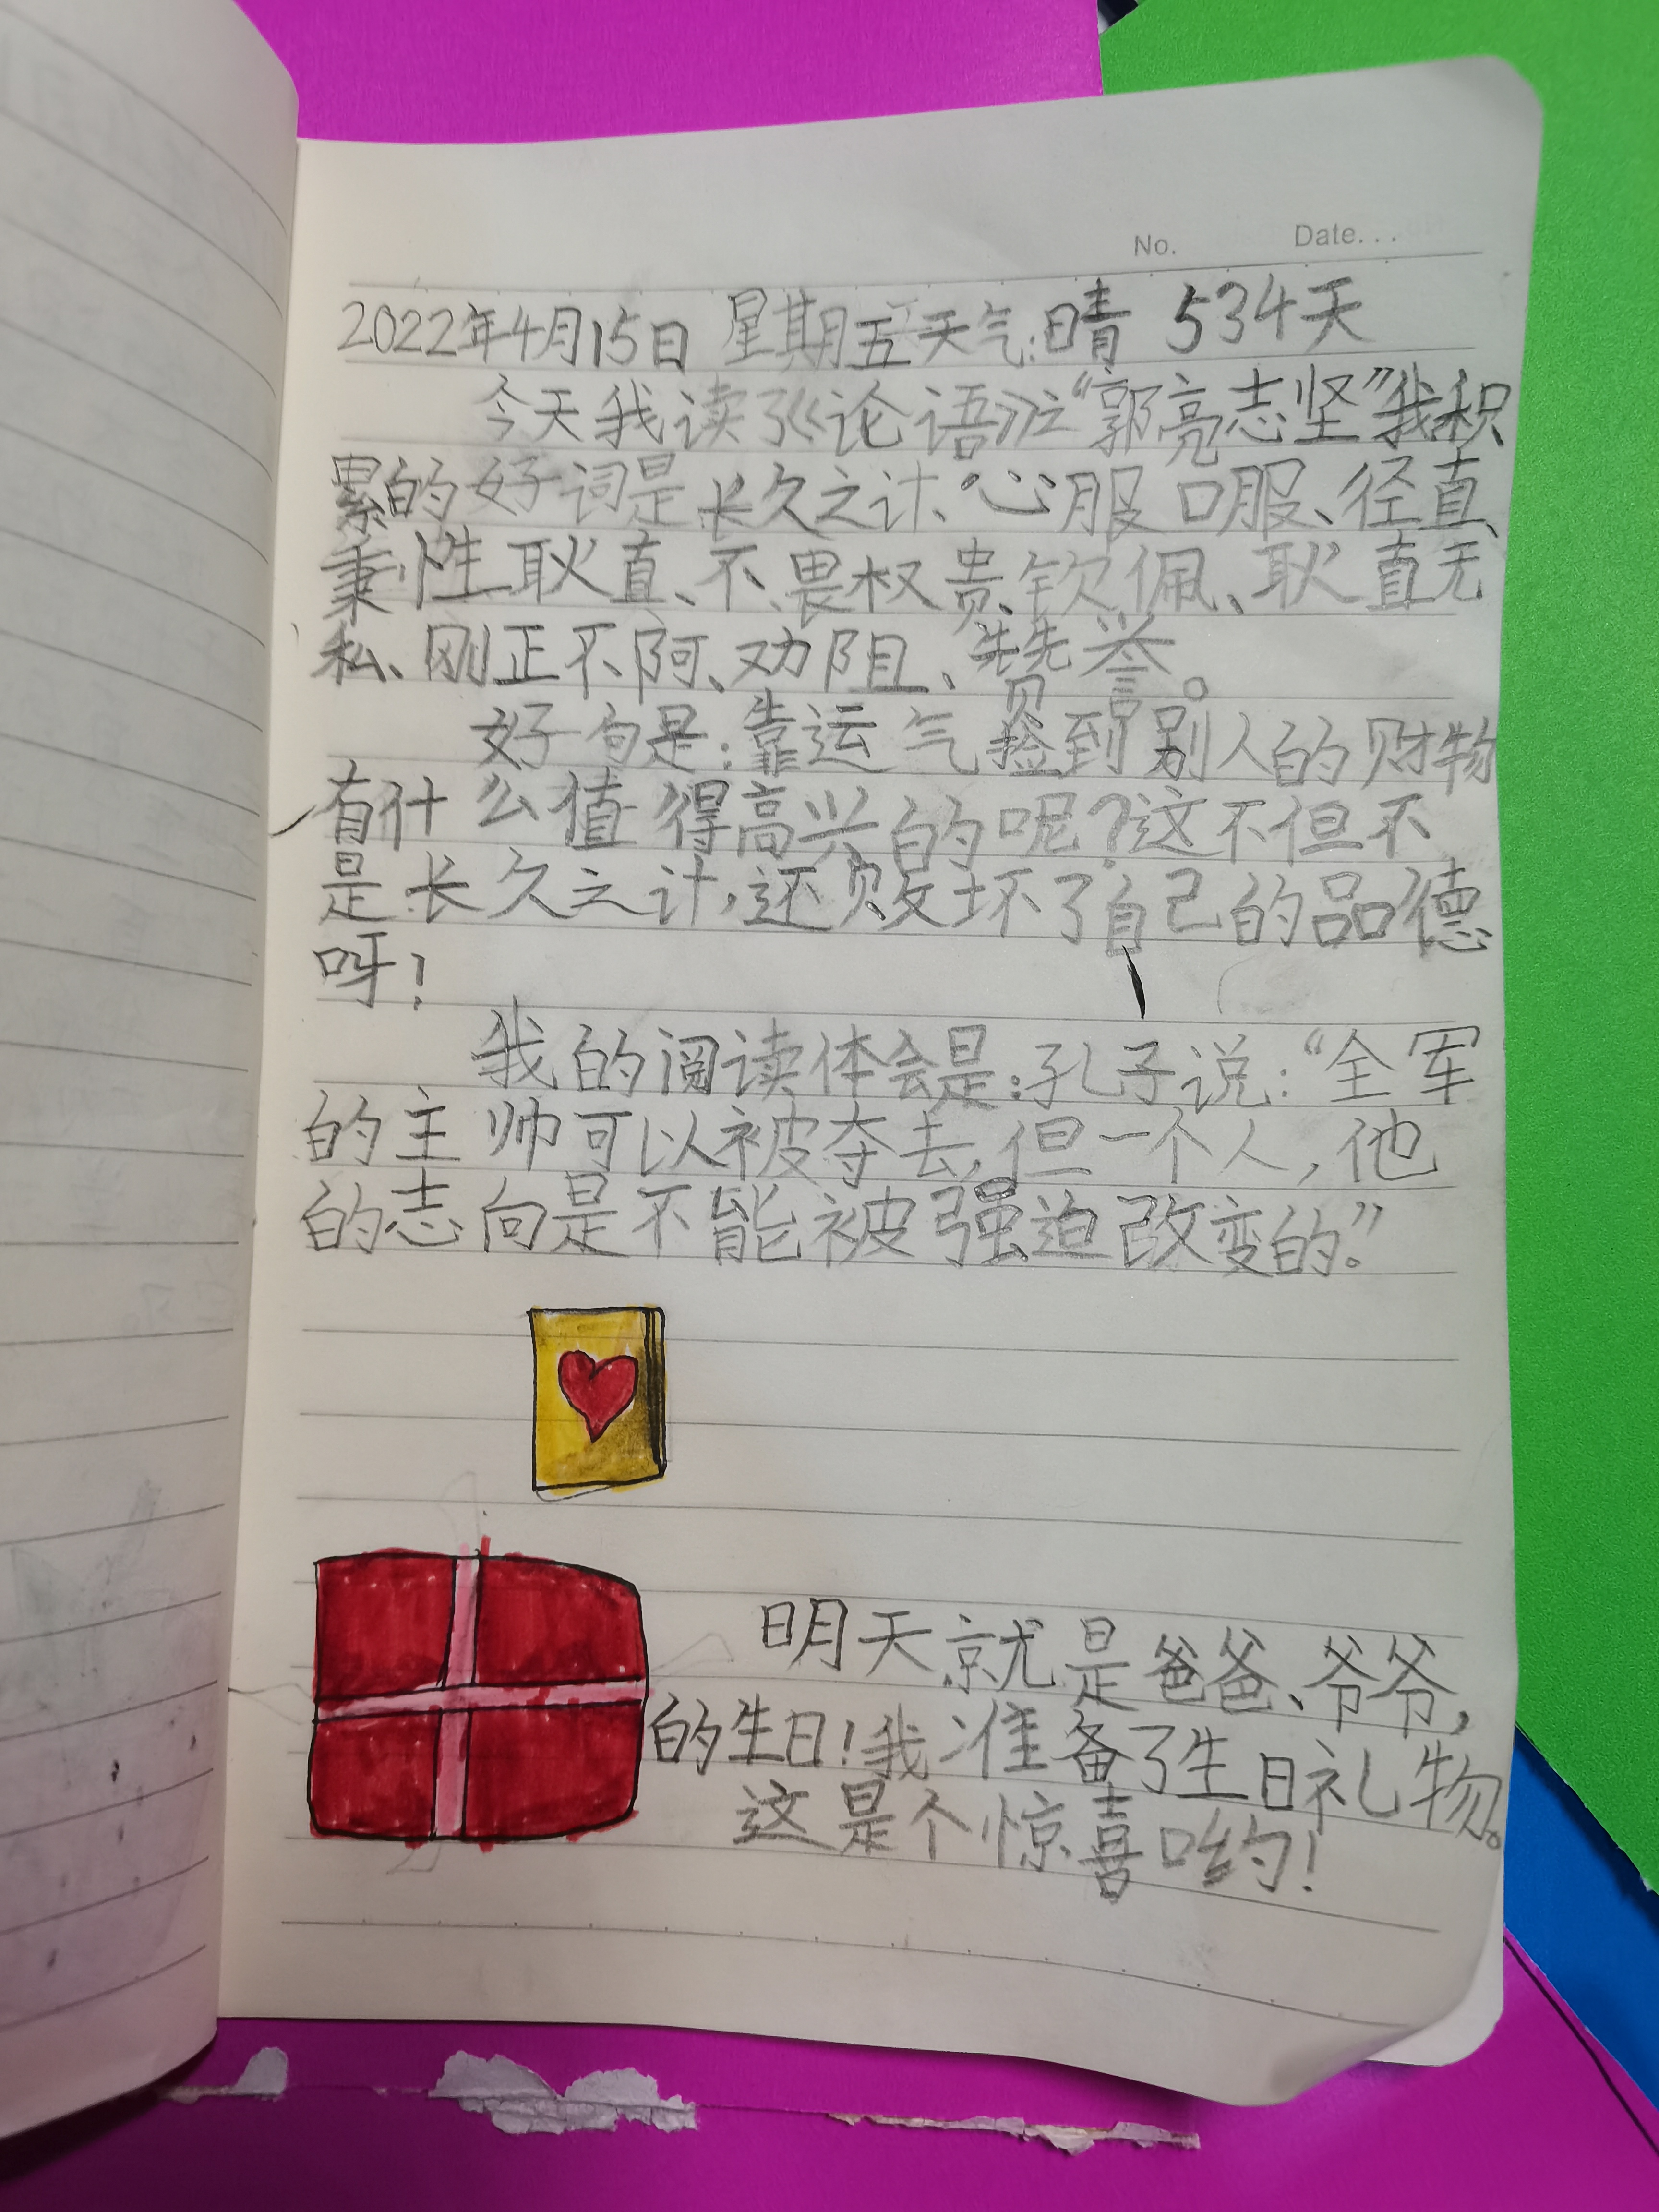 No. Date...
2022年4月15日 星期五天气:晴 534天
今天我读了《论语》之“郭亮志坚”我积
累的好词是长久之计、心服口服、径直、
秉性耿直、不畏权贵、钦佩、耿直无
私、刚正不阿、劝阻、赞誉。
好句是:靠运气捡到别人的财物
有什么值得高兴的呢?这不但不
是长久之计,还败坏了自己的品德
呀!
我的阅读体会是:孔子说:“全军
的主帅可以被夺去,但一个人,他
的志向是不能被强迫改变的。”
明天就是爸爸、爷爷,
的生日!我准备了生日礼物。
这是个惊喜哟!